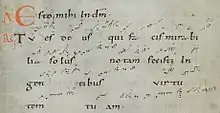 A Esto mihi in dm̄
TV es de us qui fa cis mirabi
lia solus notam fecisti in
gen tibus virtu
tem tu am.